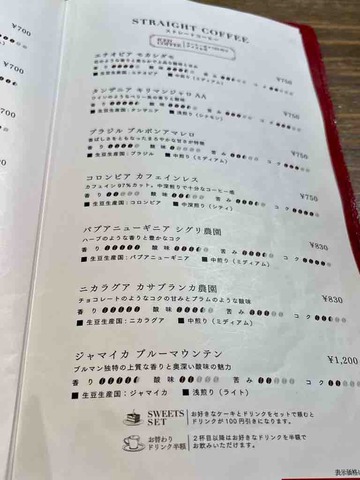 ¥700
STRAIGHT COFFEE
ストレートコーヒー
エチオピア モカシダモ
¥750
香り 酸味 苦み コク
■ 生豆生産国：エチオピア
タンザニア キリマンジャロ AA
ワインのようなベリー系の香りと酸味 ¥750
香り 酸味 苦み コク
■ 生豆生産国：タンザニア ■ 浅煎り（シナモン）
ブラジル ブルボンアマレロ
香ばしさをともなったまろやかな甘さが特徴 ¥750
香り 酸味 苦み コク
■ 生豆生産国：ブラジル ■ 中煎り（ミディアム）
コロンビア カフェインレス
カフェイン97%カット。中深煎りで十分なコーヒー感 ¥750
香り 酸味 苦み コク
■ 生豆生産国：コロンビア ■ 中深煎り（シティ）
パプアニューギニア シグリ農園
ハーブのような香りと豊かなコク ¥830
香り 酸味 苦み コク
■ 生豆生産国：パプアニューギニア ■ 中煎り（ミディアム）
ニカラグア カサブランカ農園
チョコレートのようなコクの甘みとプラムのような酸味 ¥830
香り 酸味 苦み コク
■ 生豆生産国：ニカラグア ■ 中煎り（ミディアム）
ジャマイカ ブルーマウンテン
ブルマン独特の上質な香りと奥深い酸味の魅力 ¥1,200
香り 酸味 苦み コク
■ 生豆生産国：ジャマイカ ■ 浅煎り（ライト）
SWEETS SET
お好きなケーキとドリンクをセットで頼むと
ドリンクが100円引きになります。
お替わり
ドリンク半額
2杯目以降はお好きなドリンクを半額で
お飲みいただけます。
表示価格は